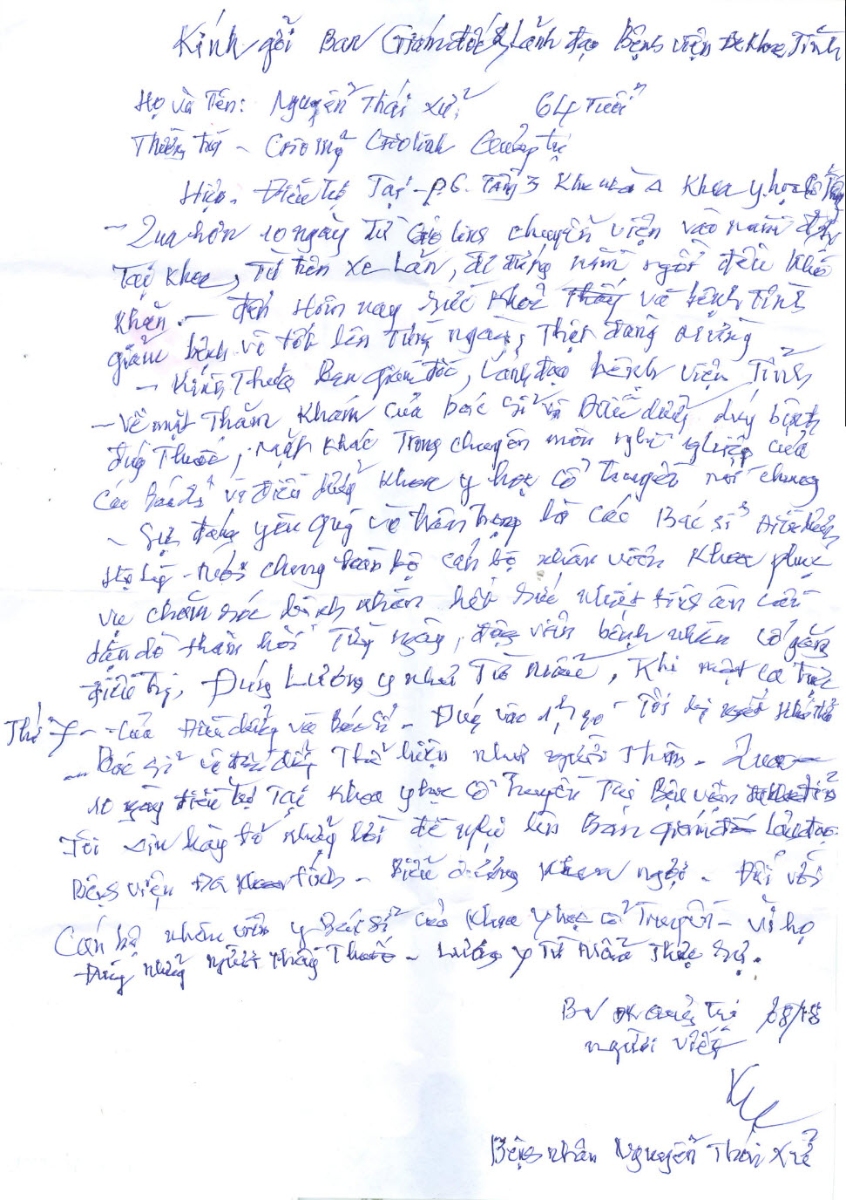 Kính gởi Ban Giám đốc & Lãnh đạo Bệnh viện Đa Khoa Tỉnh
Họ và Tên: Nguyễn Thái Xử 64 Tuổi
Thường trú - Gio Mỹ Gio Linh Quảng Trị
Hiện Điều trị Tại - P.6. Tầng 3 Khu nhà A Khoa y học Cổ
- Qua hơn 10 ngày Từ Gio Linh chuyển viện vào nằm
Tại Khoa, Từ trên xe Lăn, đi đứng nằm ngồi đều Khó
Khăn. - đến Hôm nay Sức Khoẻ Thấy và bệnh Tình
giảm bệnh và tốt lên Từng ngày, Thật đáng mừng
- Kính Thưa Ban Giám đốc, Lãnh đạo bệnh viện Tỉnh
- Về mặt Thăm Khám của bác sĩ và Điều dưỡng, bệnh
đúng Thuốc, mặt Khác Trong chuyên môn nghề nghiệp của
Các Bác sĩ và điều dưỡng Khoa y học cổ Truyền nói chung
- Sự đáng yêu quý và trân trọng là các Bác sĩ Điều dưỡng
Hộ lý - Nói chung toàn bộ cán bộ nhân viên Khoa phục
vụ chăm sóc bệnh nhân hết sức nhiệt tình ân cần
dặn dò thăm hỏi Từng ngày, động viên bệnh nhân cố gắng
điều trị, Đúng Lương y như Từ Mẫu, Khi một ca trực
Thứ 7 - Của Điều dưỡng và Bác sĩ - Đúng vào Tôi
- Bác sĩ và điều dưỡng Thể hiện như người Thân. Qua
10 ngày điều trị Tại Khoa y học cổ Truyền Tại Bệnh viện
Tôi xin bày tỏ những lời đề nghị lên Ban Giám đốc Lãnh đạo
Bệnh viện Đa Khoa tỉnh - Biểu dương Khen ngợi - Đối với
Cán bộ nhân viên y Bác sĩ của Khoa y học cổ Truyền - vì họ
Đúng những người Thầy Thuốc - Lương y Từ Mẫu Thực Sự.
BV ĐK Quảng Trị /8/18
người viết
Bệnh nhân Nguyễn Thái Xử